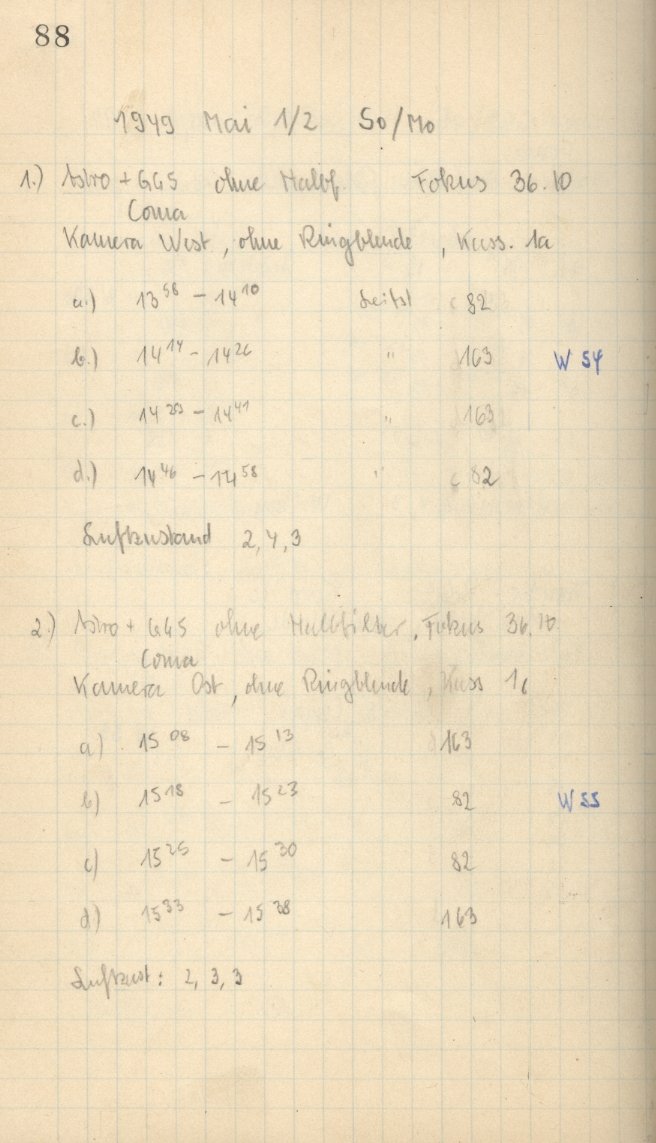 88
1949 Mai 1/2 So/Mo
1.) Astro + GG5 ohne Halbf. Fokus 36.10
Coma
Kamera West, ohne Ringblende, Kass. 1a
a.) 13 58 - 14 10 Seitst 82
b.) 14 14 - 14 26 " 163 W 54
c.) 14 29 - 14 41 " 163
d.) 14 46 - 14 58 " 82
Luftzustand 2, 4, 3
2.) Astro + GG5 ohne Halbfilter, Fokus 36.10
Coma
Kamera Ost, ohne Ringblende, Kass 1c
a) 15 08 - 15 13 163
b) 15 18 - 15 23 82 W 55
c) 15 25 - 15 30 82
d) 15 33 - 15 38 163
Luftzust: 2, 3, 3